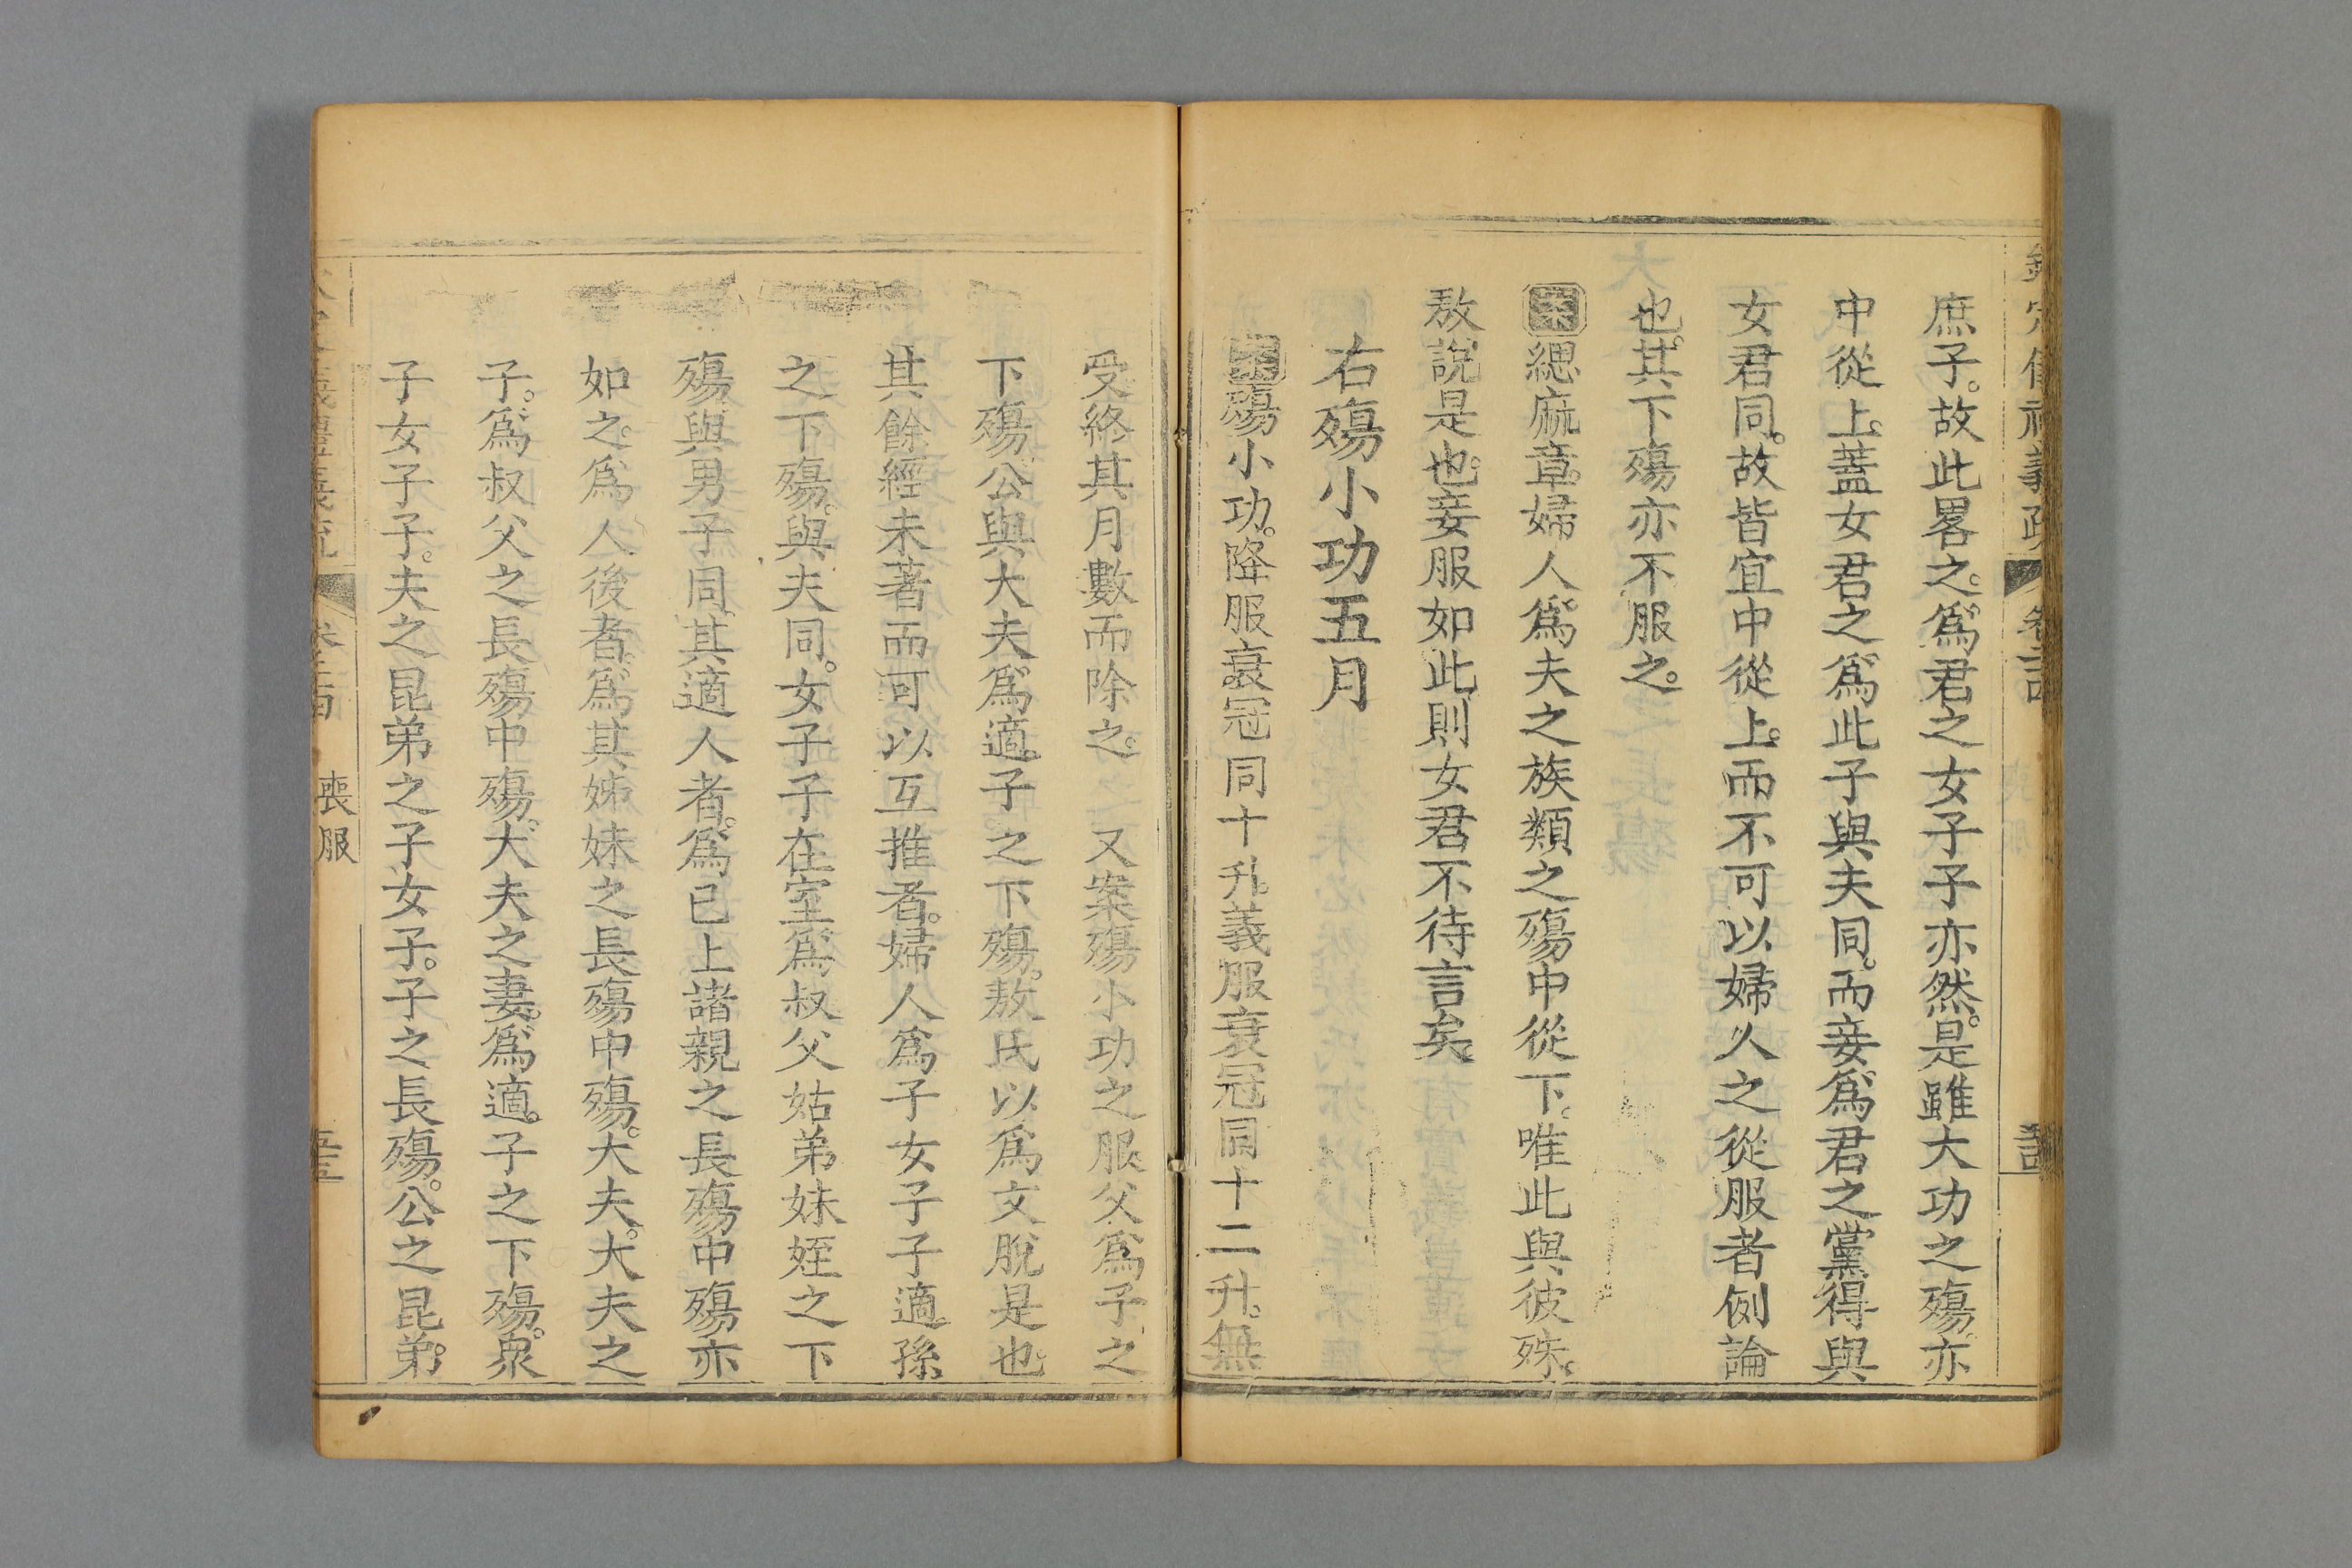 庶子。故此畧之。爲君之女子子亦然。是雖大功之殤亦
中從上。蓋女君之爲此子與夫同。而妾爲君之黨得與
女君同。故皆宜中從上。而不可以婦人之從服者例論
也。其下殤亦不服之。
案緦麻章。婦人爲夫之族類之殤中從下。唯此與彼殊。
敖說是也。妾服如此則女君不待言矣。
右殤小功五月
案殤小功。降服衰冠同十升。義服衰冠同十二升。無
受終其月數而除之。 又案殤小功之服。父爲子之
下殤。公與大夫爲適子之下殤。敖氏以爲文脫是也。
其餘經未著而可以互推者。婦人爲子女子子適孫
之下殤。與夫同。女子子在室爲叔父姑弟妹姪之下
殤與男子同。其適人者。爲已上諸親之長殤中殤亦
如之。爲人後者。爲其姊妹之長殤中殤。大夫。大夫之
子。爲叔父之長殤中殤。大夫之妻。爲適子之下殤。衆
子女子子。夫之昆弟之子女子。子之長殤。公之昆弟。
喪服